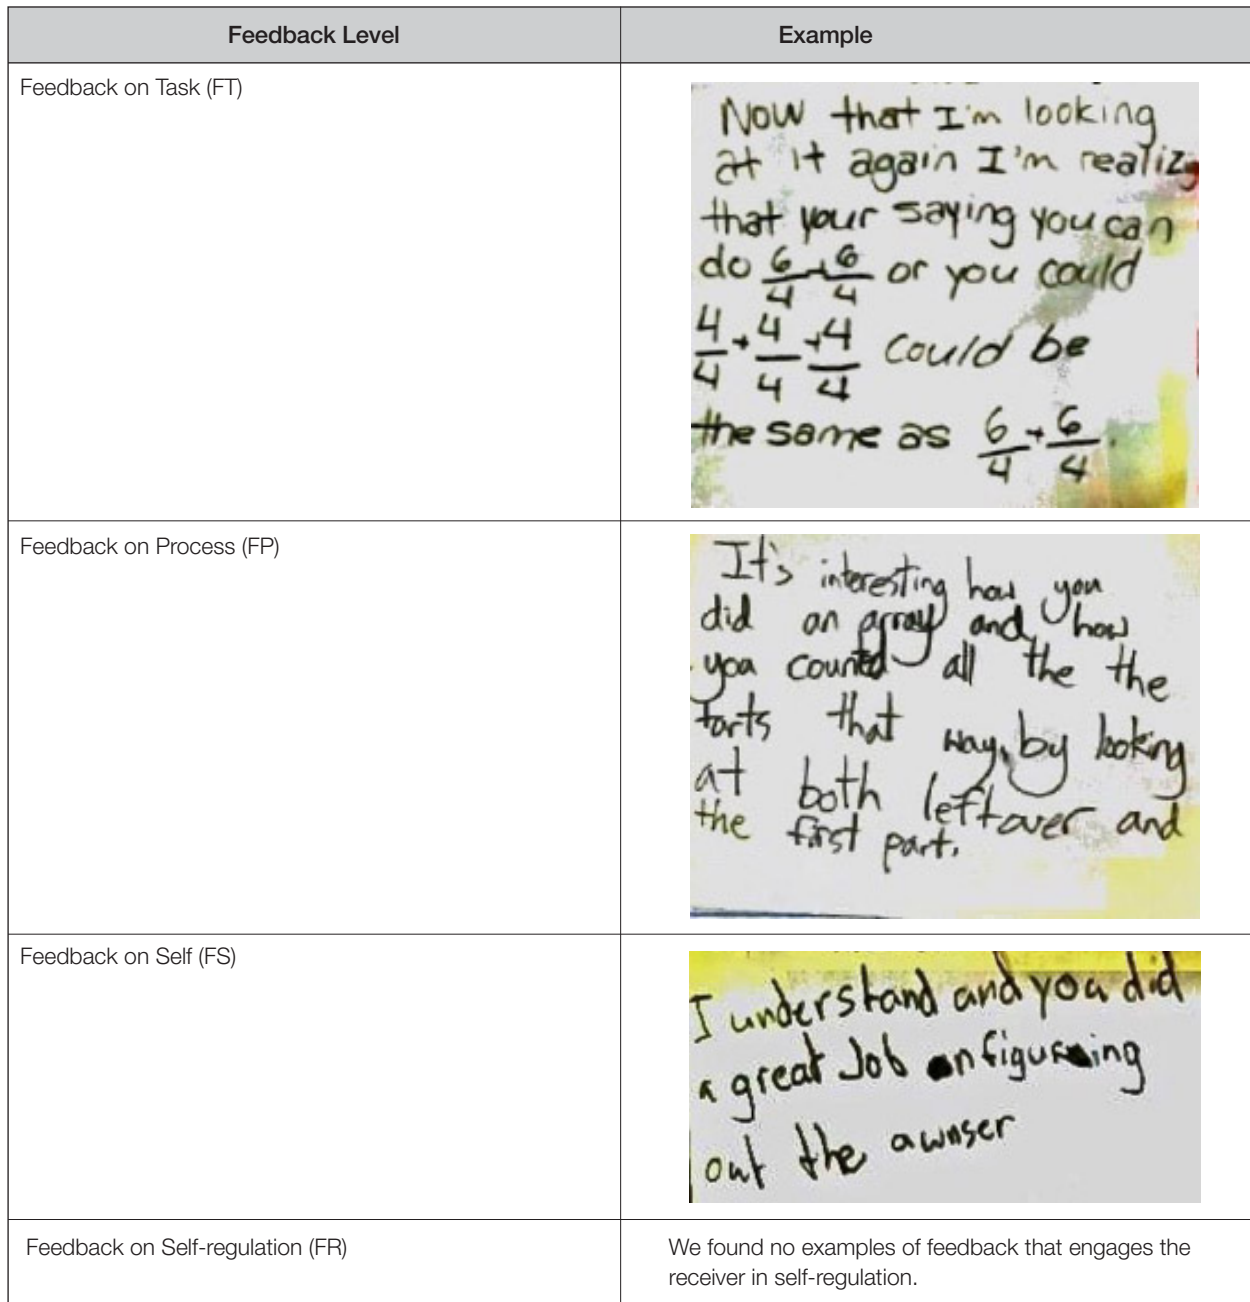 Feedback Level Example
Feedback on Task (FT)
Now that I'm looking
at it again I'm realiz
that your saying you can
do 6/4 + 6/4 or you could
4/4 + 4/4 + 4/4 could be
the same as 6/4 + 6/4.
Feedback on Process (FP)
It's interesting how you
did an array and how
you counted all the the
tarts that way, by looking
at both leftover and
the first part.
Feedback on Self (FS)
I understand and you did
a great Job on figurning
out the awnser
Feedback on Self-regulation (FR)
We found no examples of feedback that engages the
receiver in self-regulation.